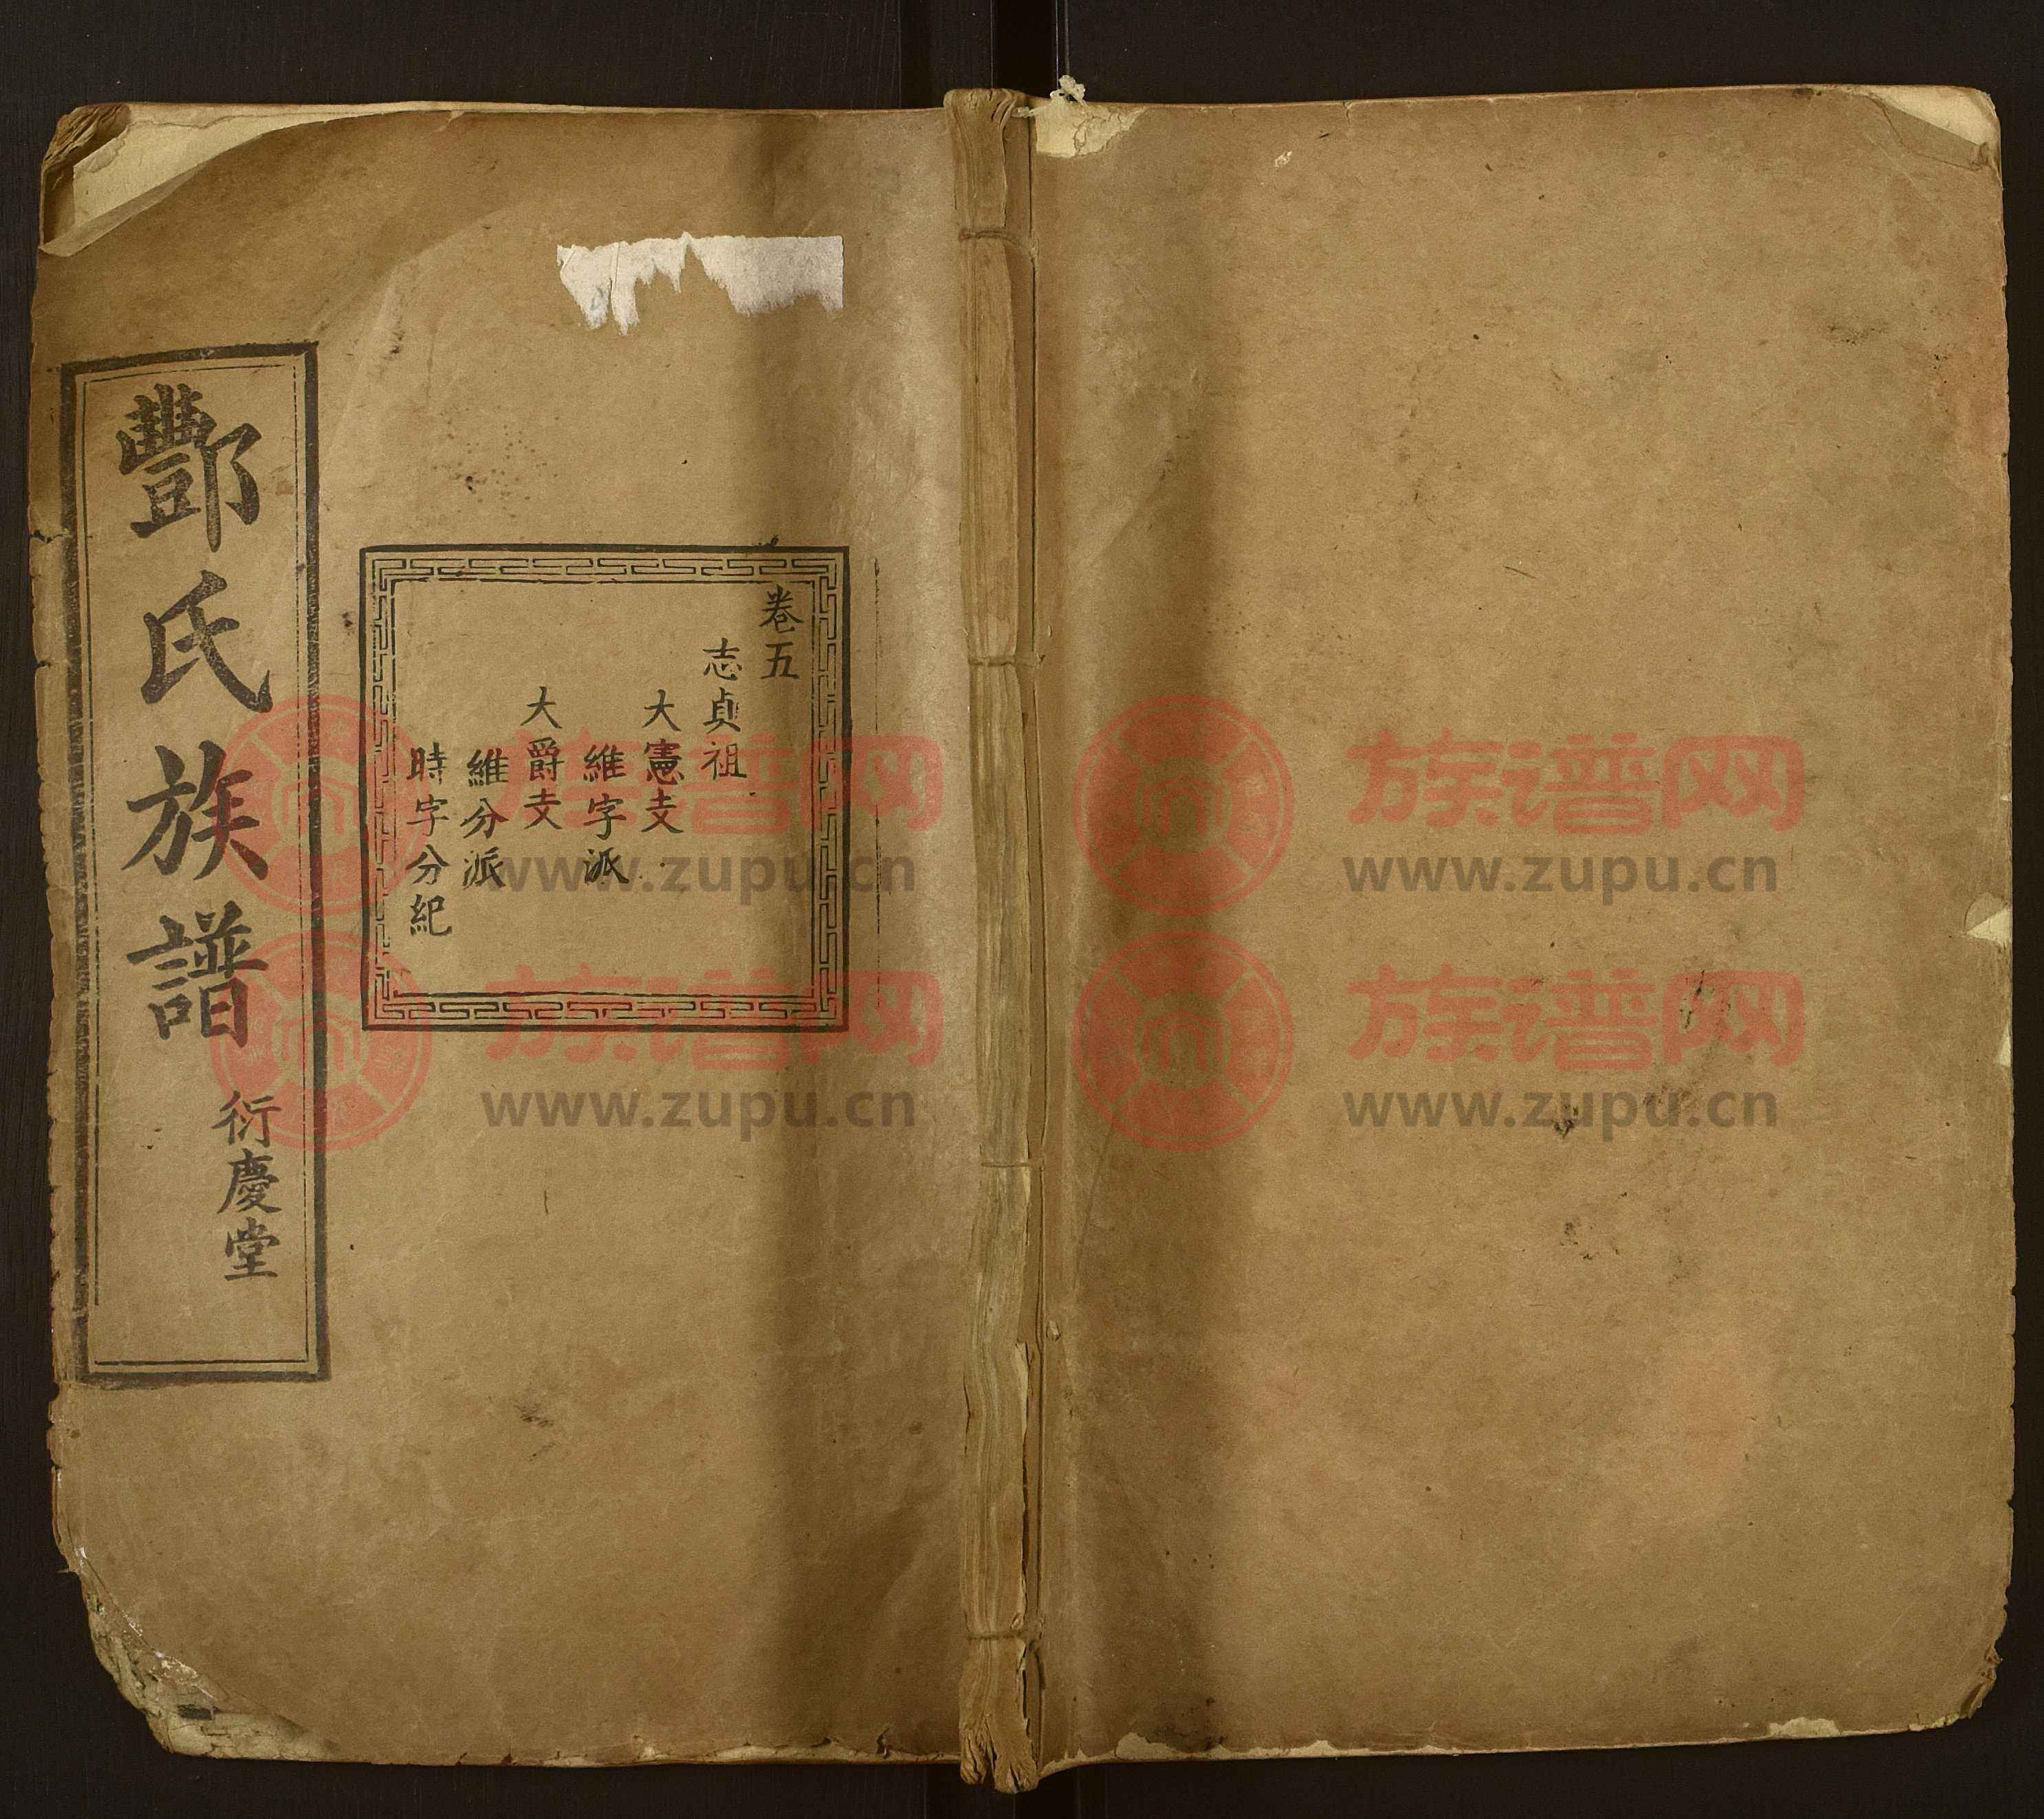 酆氏族譜
衍慶堂
卷五
志貞祖
大憲支
維字派
大爵支
維分派
時字分紀
族谱网
www.zupu.cn
族谱网
www.zupu.cn
族谱网
www.zupu.cn
族谱网
www.zupu.cn